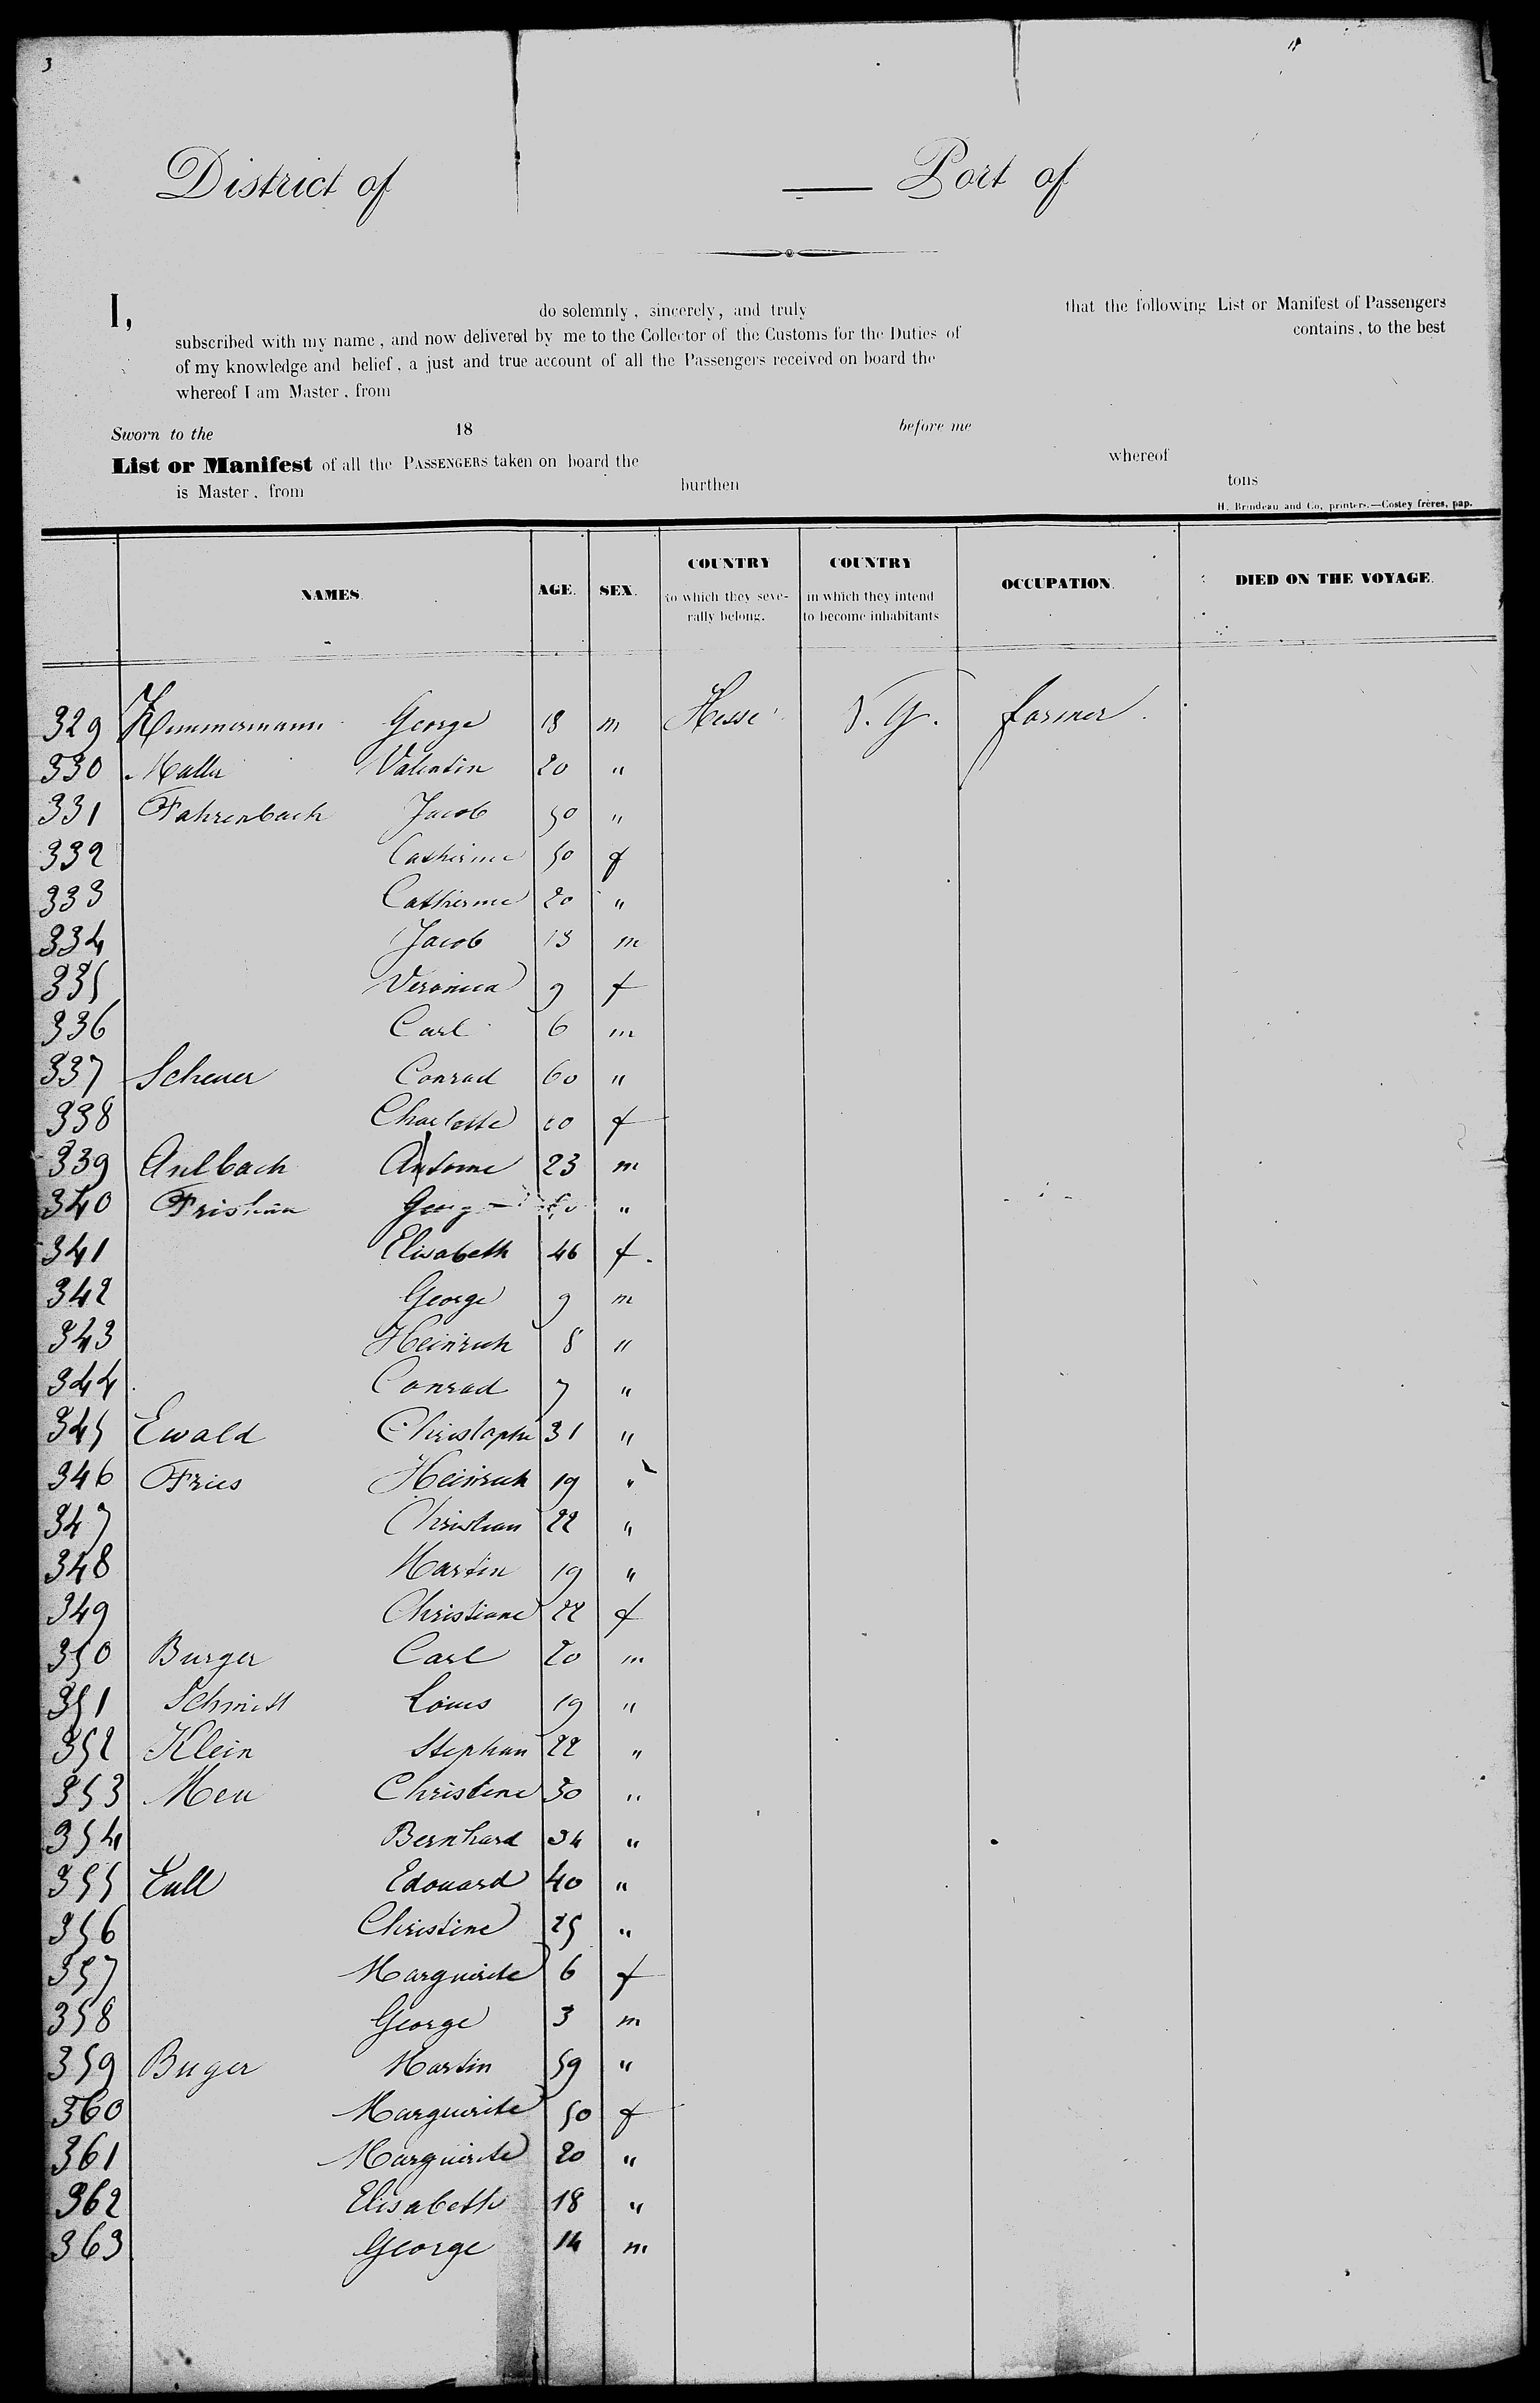 3
District of — Port of
I, do solemnly, sincerely, and truly that the following List or Manifest of Passengers
subscribed with my name, and now delivered by me to the Collector of the Customs for the Duties of contains, to the best
of my knowledge and belief, a just and true account of all the Passengers received on board the
whereof I am Master, from
Sworn to the 18 before me
List or Manifest of all the PASSENGERS taken on board the whereof
is Master, from burthen tons
H. Brindeau and Co, printers.—Costey frères, pap.
NAMES. AGE. SEX. COUNTRY to which they severally belong. COUNTRY in which they intend to become inhabitants OCCUPATION. DIED ON THE VOYAGE.
329 Zimmermann George 18 m Hesse farmer.
330 Valentin 20 "
331 Fahrenbach Jacob 50 "
332 Catherine 50 f
333 Catherine 20 "
334 Jacob 13 m
335 Veronica 9 f
336 Carl 6 m
337 Scheuer Conrad 60 "
338 Charlotte f
339 Aulbach Antoine 23 m
340 "
341 Elisabeth 46 f.
342 George 9 m
343 Heinrich 8 "
344 Conrad 7 "
345 Ewald Christophe 31 "
346 Fries Heinrich 19 "
347 Christian 22 "
348 Martin 19 "
349 Christiane 22 f
350 Burger Carl 20 m
351 Schmitt Louis 19 "
352 Klein Stephan 22 "
353 Christine 30 "
354 Bernhard 34 "
355 Eull Edouard 40 "
356 Christine 25 "
357 Marguerite 6 f
358 George 3 m
359 Buger Martin 59 "
360 Marguerite 50 f
361 Marguerite 20 "
362 Elisabeth 18 "
363 George 14 m